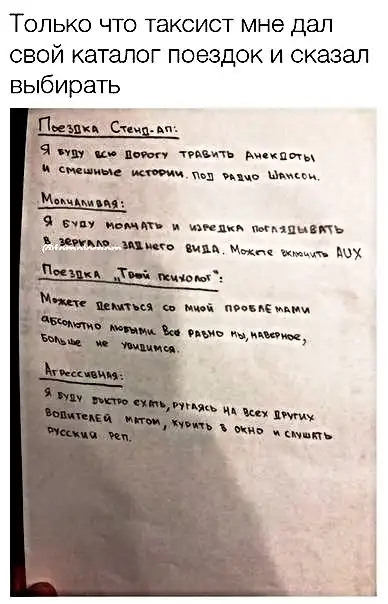 Только что таксист мне дал
свой каталог поездок и сказал
выбирать
Поездка Стенд-ап:
Я буду всю дорогу травить анекдоты
и смешные истории. Под радио Шансон.
Молчаливая:
Я буду молчать и изредка поглядывать
в зеркало заднего вида. Можете включить AUX
Поездка „Твой психолог":
Можете делиться со мной проблемами
абсолютно любыми. Всё равно мы, наверное,
больше не увидимся.
Агрессивная:
Я буду быстро ехать, ругаясь на всех других
водителей матом, курить в окно и слушать
русский реп.